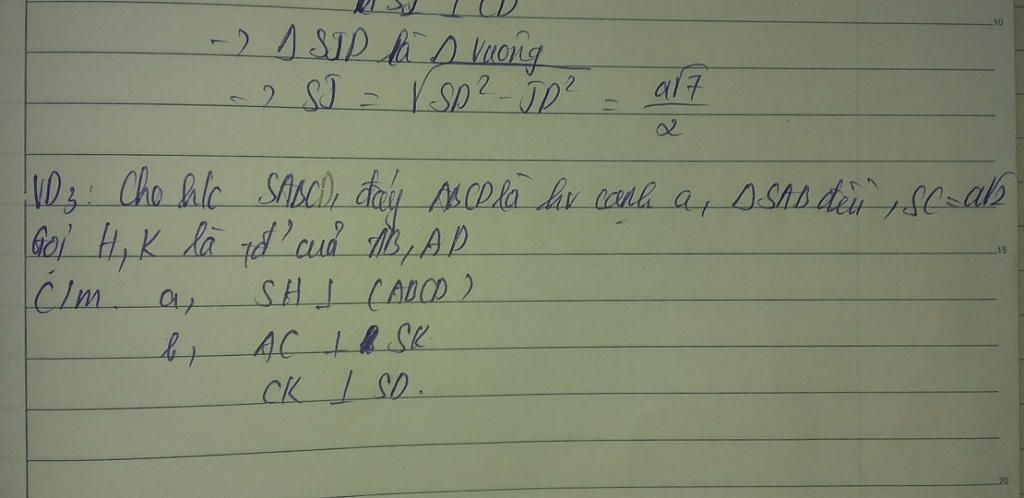 SJ ⊥ CD
→ Δ SJD là Δ vuông
→ SJ = √SD² - JD² = a√7/2
VD3: Cho h/c SABCD, đáy ABCD là hv cạnh a, ΔSAB đều, SC=a√2
Gọi H, K là tđ' của AB, AD
C/m. a, SH ⊥ (ABCD)
b, AC ⊥ SK
CK ⊥ SD.
10
15
20